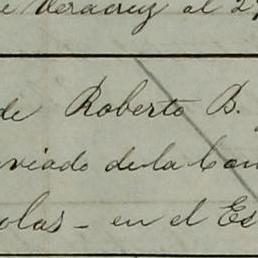 de Veracruz al 2
de Roberto B.
nviado de la Con
olas - en el Es